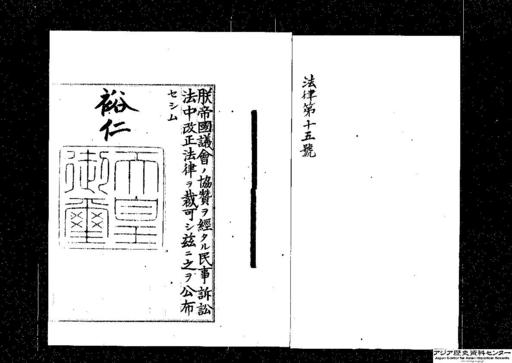 法律第十五號
朕帝國議會ノ協贊ヲ經タル民事訴訟
法中改正法律ヲ裁可シ茲ニ之ヲ公布
セシム
裕仁
天皇
御璽
アジア歴史資料センター
Japan Center for Asian Historical Records